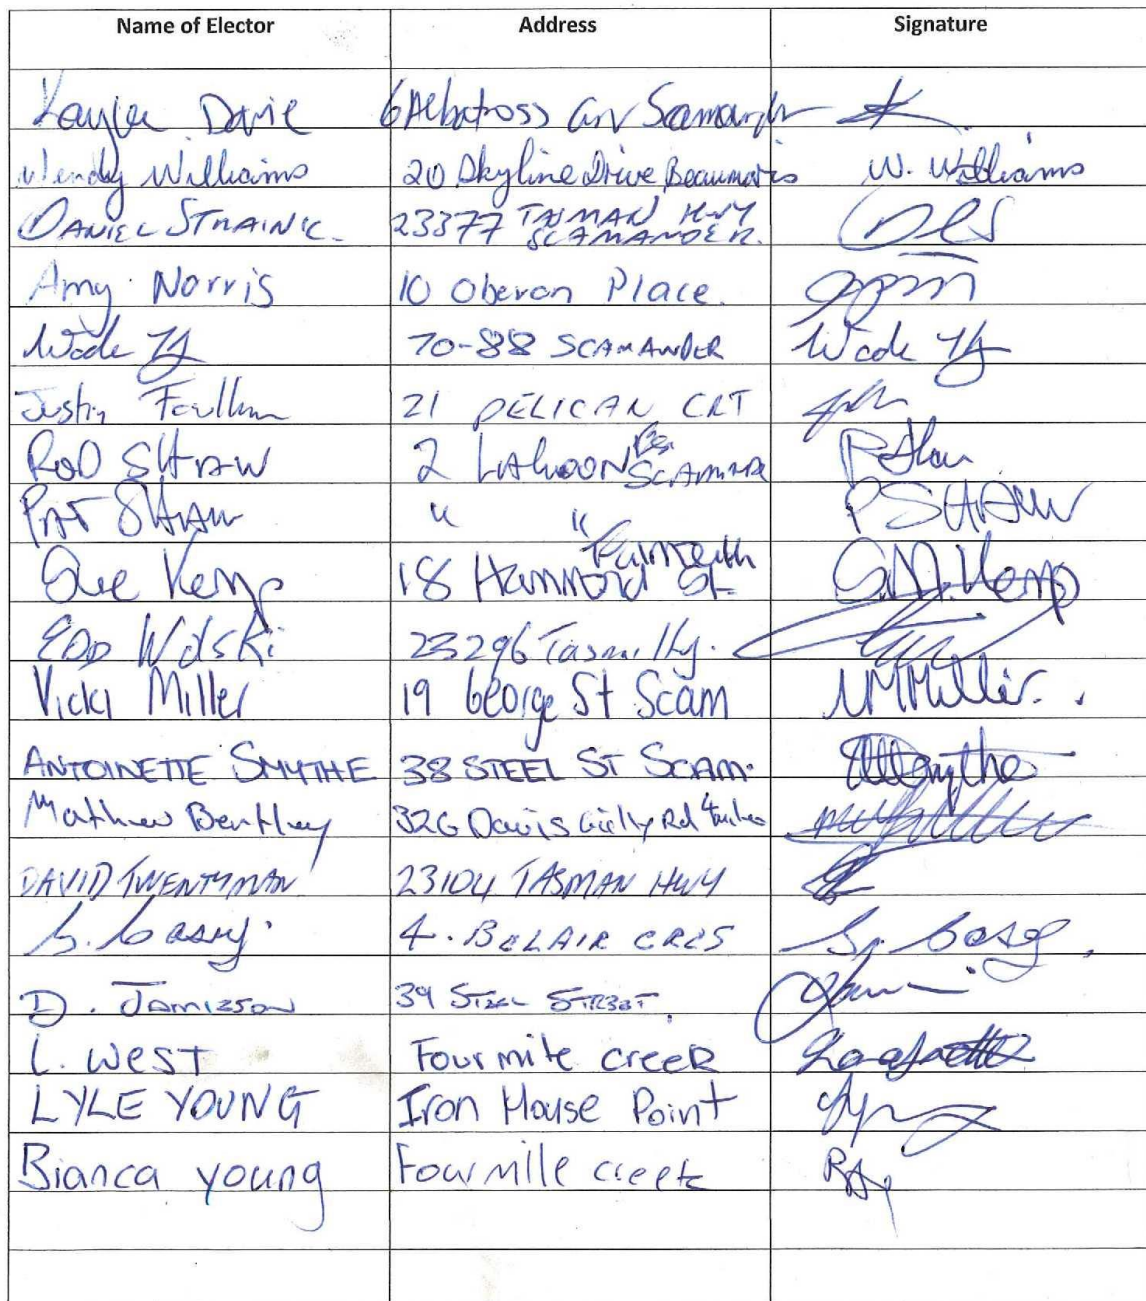 Name of Elector Address Signature
Kaylee Davie 6 Albatross Grv
Wendy Williams 20 Skyline Drive Beaumaris W. Williams
DANIEL STRAINIC. 23377 TASMAN HWY
SCAMANDER.
Amy Norris 10 Oberon Place.
Wade 70-88 SCAMANDER Wade
Justin 21 PELICAN CRT
ROD SHAW 2 LAGOON R Shaw
PAT SHAW " " P SHAW
Falmouth
Sue Kemp 18 Hammond St. S.M. Kemp
EDD Wolski 23296 Tasm. Hy.
Vicki Miller 19 George St Scam VM Miller.
ANTOINETTE SMYTHE 38 STEEL ST SCAM. Smythe
Mathew Bentley 326 Davis Gully Rd
DAVID TWENTYMAN 23104 TASMAN HWY
S. Casey. 4. BELAIR CRES S. Casey.
D. Jamieson 39 STEEL STREET.
L. WEST Four mile creek
LYLE YOUNG Iron House Point
Bianca young Four mile creek